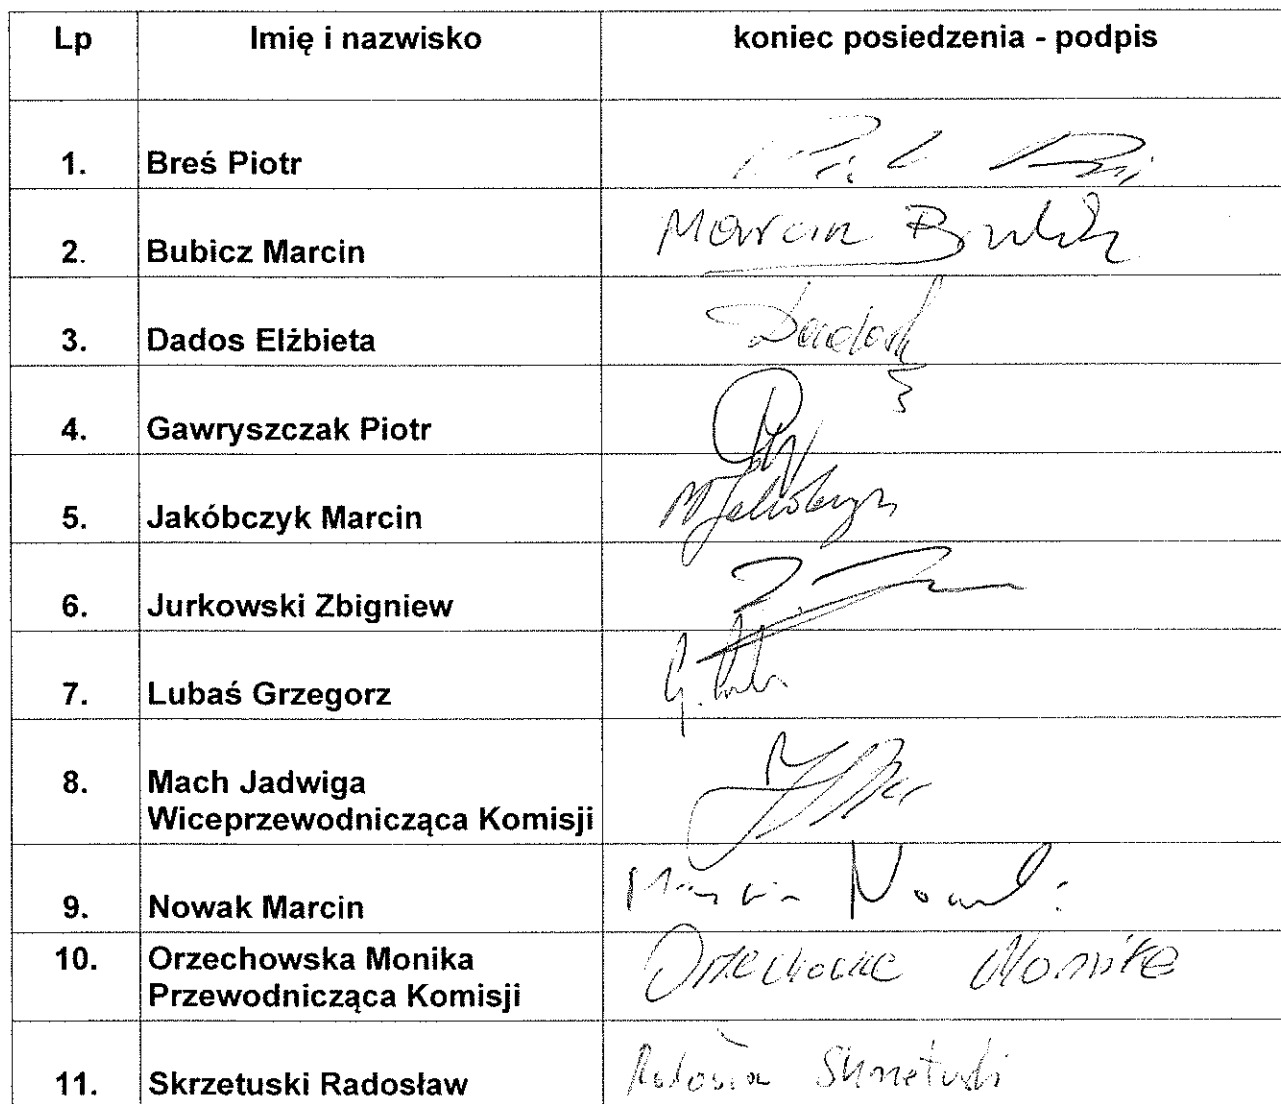 Lp Imię i nazwisko koniec posiedzenia - podpis
1. Breś Piotr
2. Bubicz Marcin Marcin
3. Dados Elżbieta
4. Gawryszczak Piotr
5. Jakóbczyk Marcin
6. Jurkowski Zbigniew
7. Lubaś Grzegorz
8. Mach Jadwiga
Wiceprzewodnicząca Komisji
9. Nowak Marcin Marcin Nowak
10. Orzechowska Monika
Przewodnicząca Komisji Monika
11. Skrzetuski Radosław Skrzetuski